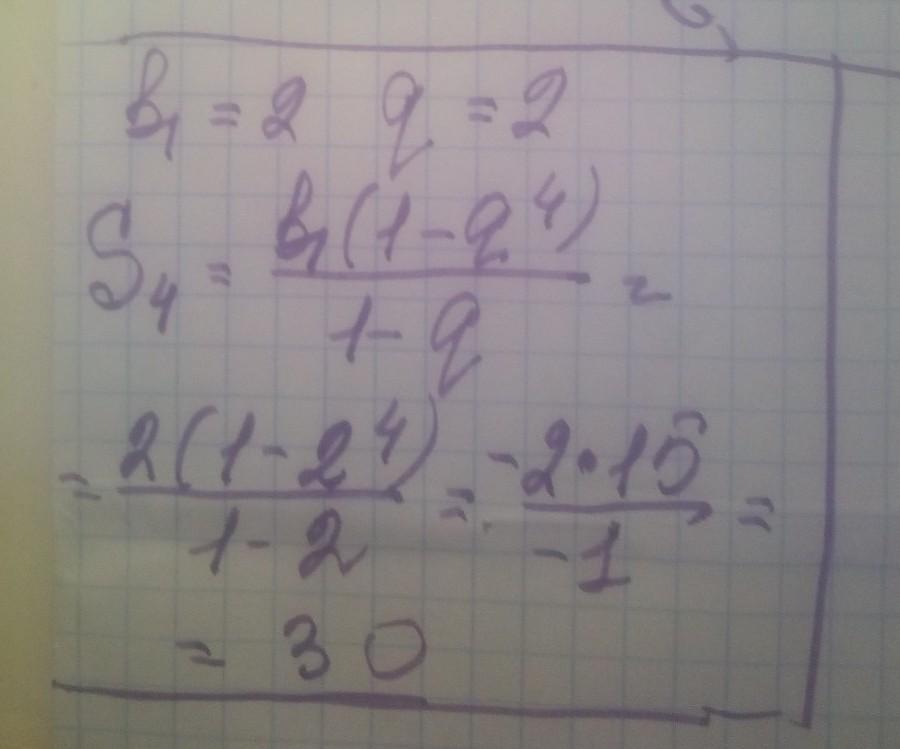 b₁ = 2 q = 2
S₄ = b₁(1-q⁴) / 1-q =
= 2(1-2⁴) / 1-2 = -2·15 / -1 =
= 30